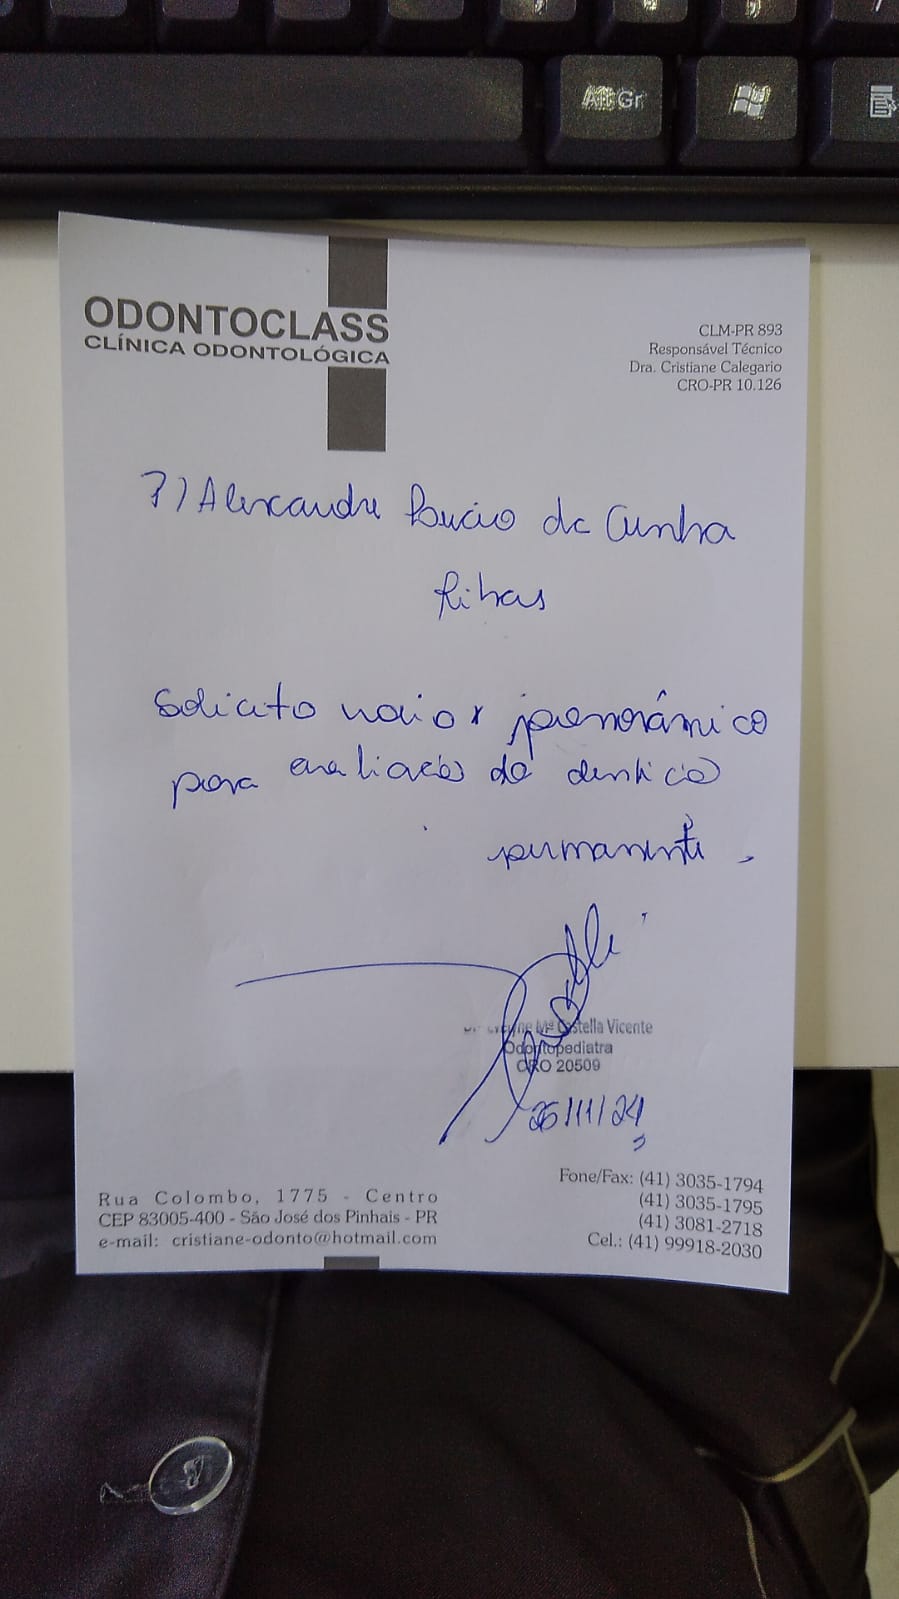 Alt Gr
ODONTOCLASS
CLÍNICA ODONTOLÓGICA
CLM-PR 893
Responsável Técnico
Dra. Cristiane Calegario
CRO-PR 10.126
P/ Alexandre da Cunha
Ribas
Solicito raio x panorâmico
para avaliação da dentição
permanente.
Mª Castella Vicente
Odontopediatra
CRO 20509
26/11/24
Rua Colombo, 1775 - Centro
CEP 83005-400 - São José dos Pinhais - PR
e-mail: cristiane-odonto@hotmail.com
Fone/Fax: (41) 3035-1794
(41) 3035-1795
(41) 3081-2718
Cel.: (41) 99918-2030